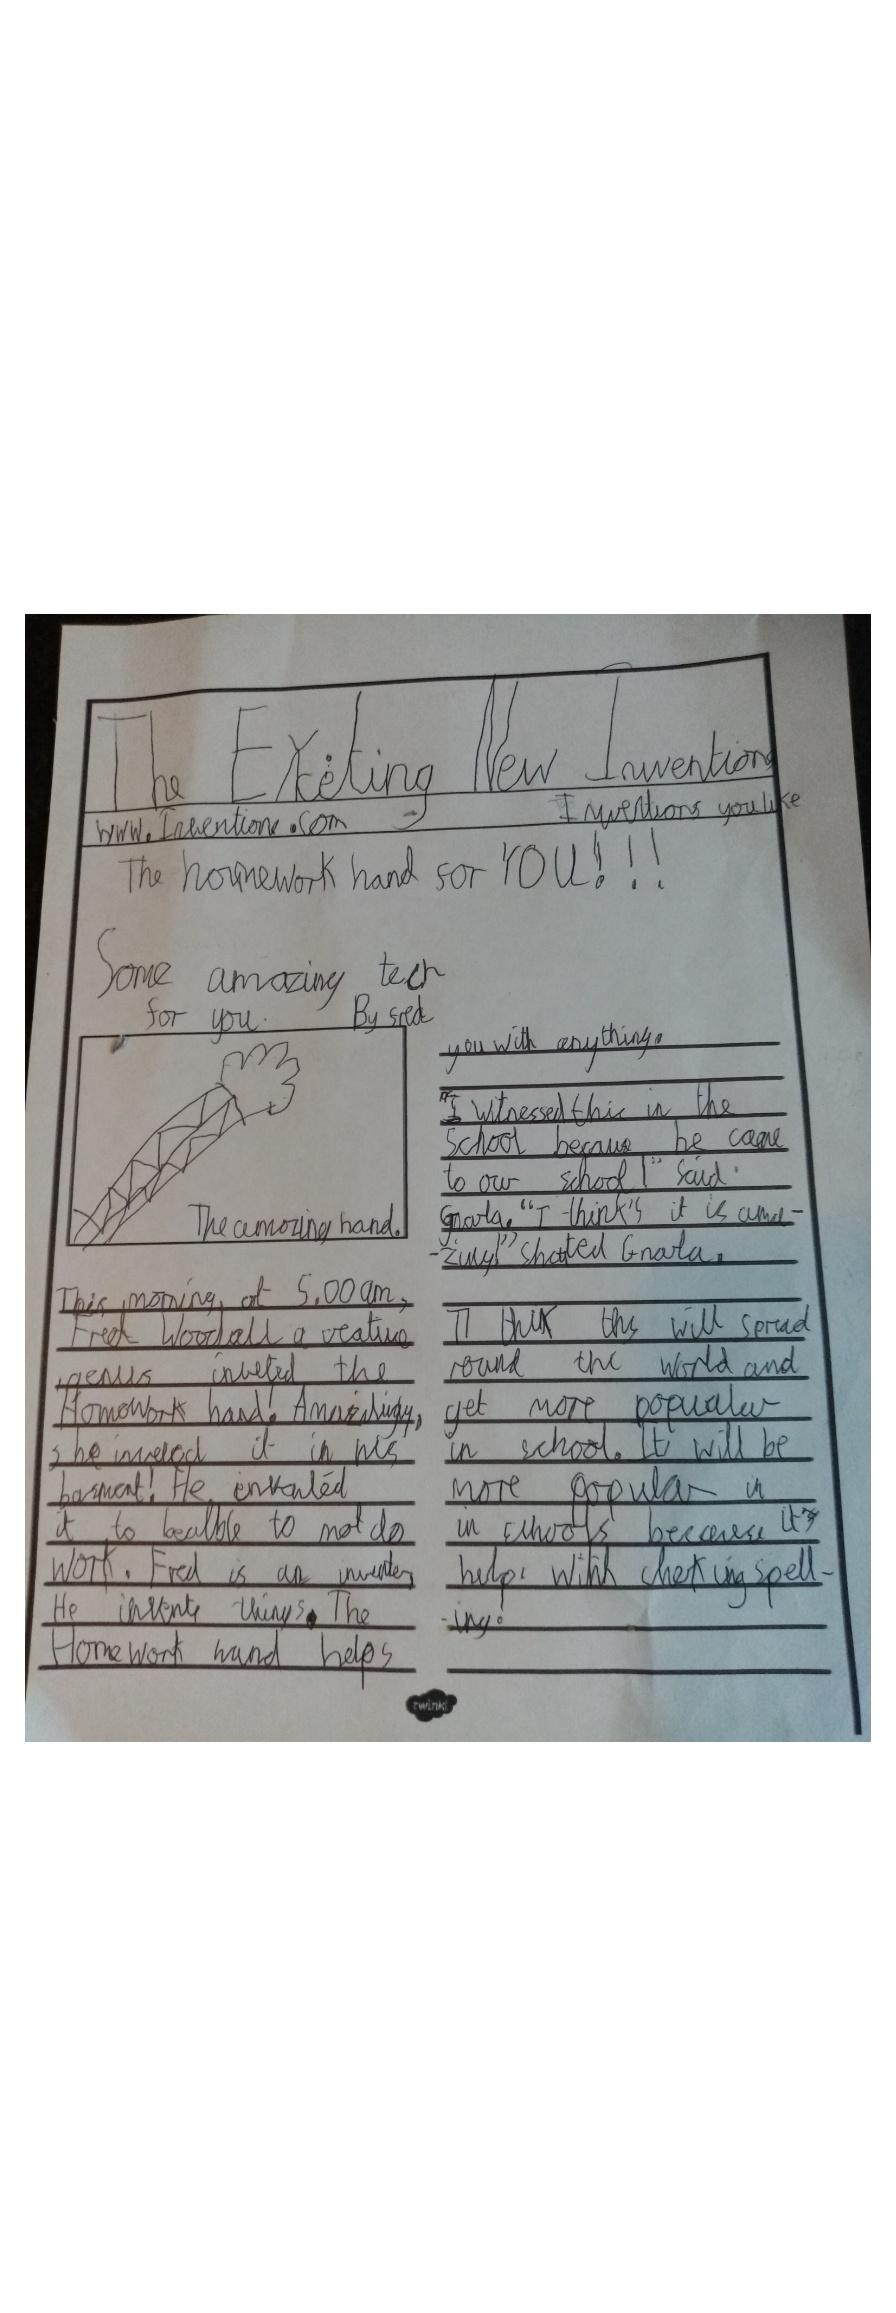 The Exketing New Invention
www.Inventions.com
Inventions you like
The homework hand for YOU!!!
Some amazing tech
for you. By fred
The amozing hand.
This morning, at 5.00am,
Fred Woodall a
genius inveted the
Homework hand! Amazingly,
he inveted it in his
basment! He invented
it to bealble to not do
work. Fred is an inventer,
He invents things. The
Homework hand helps
you with anything.
"I witnessed this in the
School becaus he came
to our school!" Said
"I think's it is ama-
-zing!" shouted
I thik ths will spread
round the world and
get more popular
in school. It will be
more popular in
in schools becaruse it's
helps with cheking spell-
-ing!
twinkl